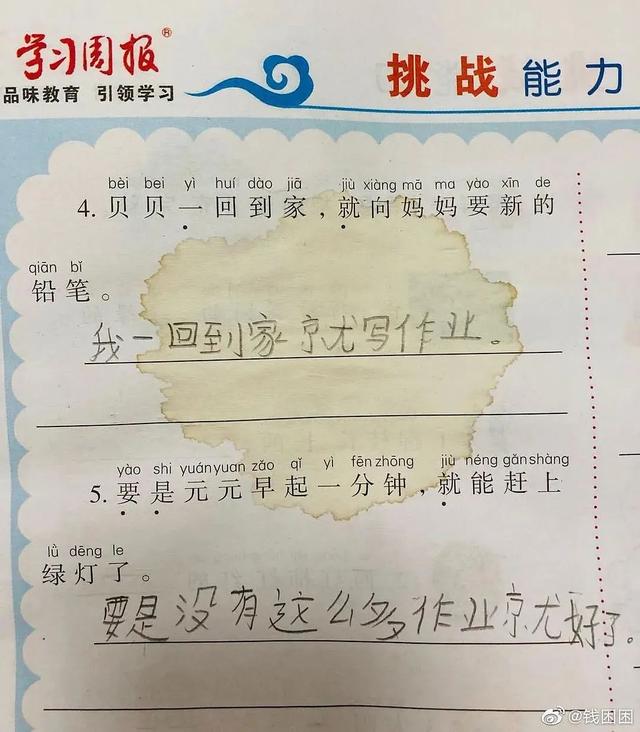 学习周报®
品味教育 引领学习
挑战能力
bèi bei yì huí dào jiā jiù xiàng mā ma yào xīn de
4. 贝贝一回到家，就向妈妈要新的
qiān bǐ
铅笔。
我一回到家就写作业。
yào shi yuányuan zǎo qǐ yì fēnzhōng jiù néng gǎnshàng
5. 要是元元早起一分钟，就能赶上
lǜ dēng le
绿灯了。
要是没有这么多作业就好了。
@钱困困